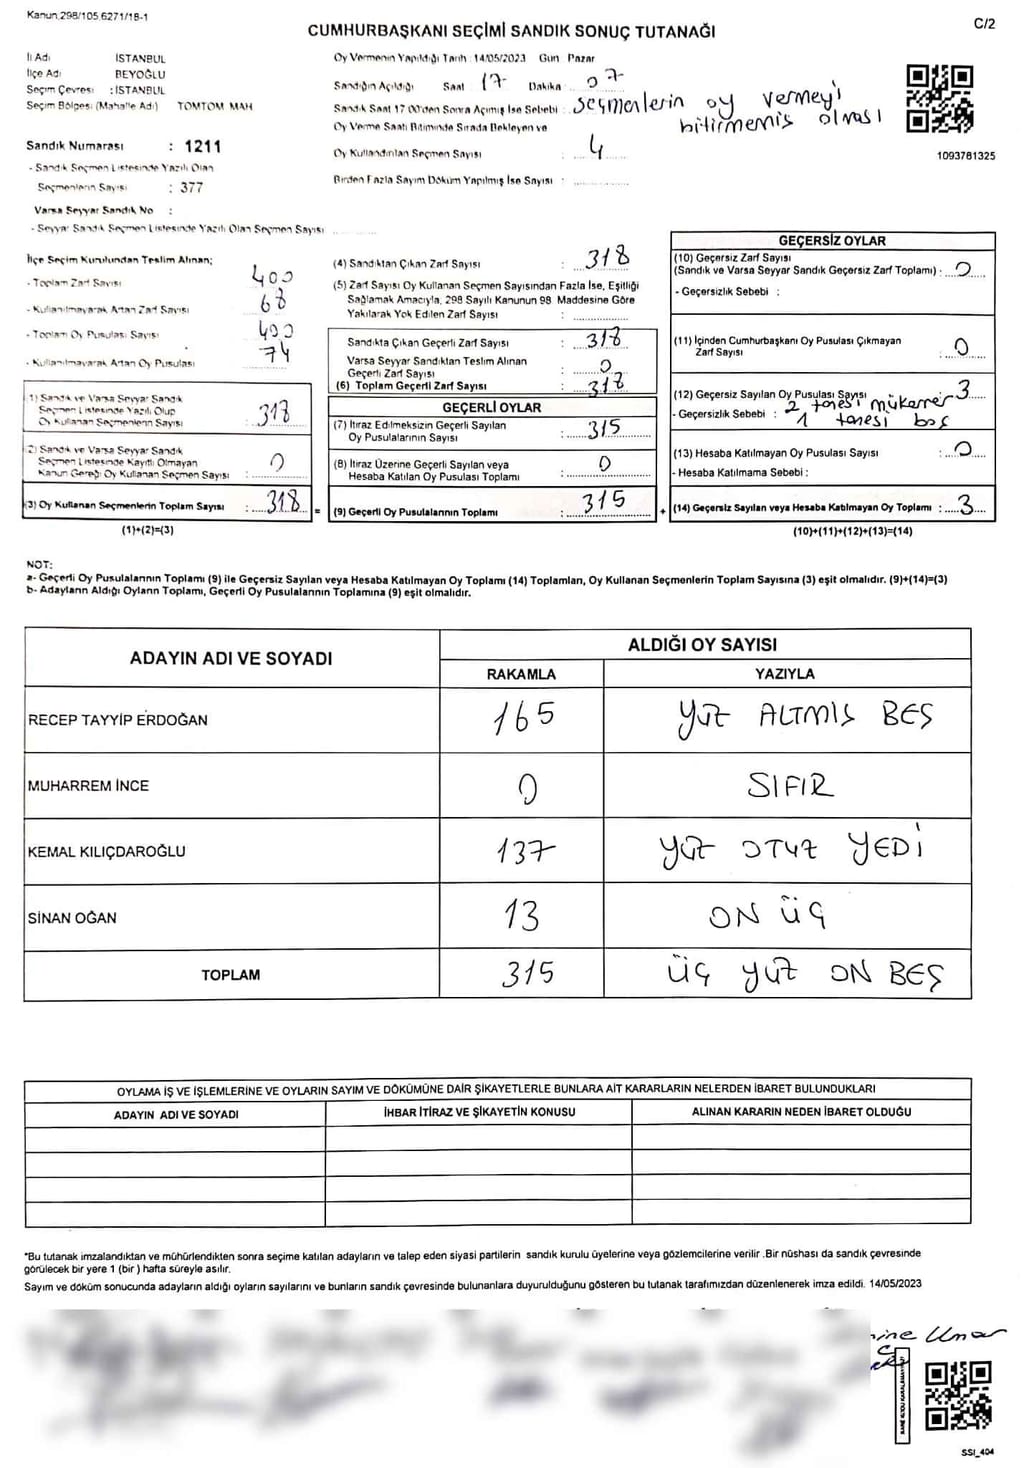 Kanun.298/105,6271/18-1
CUMHURBAŞKANI SEÇİMİ SANDIK SONUÇ TUTANAĞI
C/2
İl Adı İSTANBUL
İlçe Adı BEYOĞLU
Seçim Çevresi : İSTANBUL
Seçim Bölgesi (Mahalle Adı) TOMTOM MAH
Sandık Numarası : 1211
- Sandık Seçmen Listesinde Yazılı Olan
Seçmenlerin Sayısı : 377
Varsa Seyyar Sandık No :
- Seyyar Sandık Seçmen Listesinde Yazılı Olan Seçmen Sayısı
Oy Vermenin Yapıldığı Tarih : 14/05/2023 Gün Pazar
Sandığın Açıldığı Saat 17 Dakika 07
Sandık Saat 17 00'den Sonra Açımış İse Sebebi : Seçmenlerin oy vermeyi
bitirmemiş olması
Oy Verme Saati Bitiminde Sırada Bekleyen ve
Oy Kullandırılan Seçmen Sayısı : 4
Birden Fazla Sayım Döküm Yapılmış İse Sayısı :
1093761325
İlçe Seçim Kurulundan Teslim Alınan;
- Toplam Zarf Sayısı 400
- Kullanılmayarak Artan Zarf Sayısı 68
- Toplam Oy Pusulası Sayısı 400
- Kullanılmayarak Artan Oy Pusulası 74
1) Sandık ve Varsa Seyyar Sandık
Seçmen Listesinde Yazılı Olup
Oy Kullanan Seçmenlerin Sayısı : 318
2) Sandık ve Varsa Seyyar Sandık
Seçmen Listesinde Kayıtlı Olmayan
Kanun Gereği Oy Kullanan Seçmen Sayısı : 0
(3) Oy Kullanan Seçmenlerin Toplam Sayısı : 318 =
(1)+(2)=(3)
(4) Sandıktan Çıkan Zarf Sayısı : 318
(5) Zarf Sayısı Oy Kullanan Seçmen Sayısından Fazla İse, Eşitliği
Sağlamak Amacıyla, 298 Sayılı Kanunun 98 Maddesine Göre
Yakılarak Yok Edilen Zarf Sayısı :
Sandıkta Çıkan Geçerli Zarf Sayısı : 318
Varsa Seyyar Sandıktan Teslim Alınan
Geçerli Zarf Sayısı : 0
(6) Toplam Geçerli Zarf Sayısı : 318
GEÇERLİ OYLAR
(7) İtiraz Edilmeksizin Geçerli Sayılan
Oy Pusulalarının Sayısı : 315
(8) İtiraz Üzerine Geçerli Sayılan veya
Hesaba Katılan Oy Pusulası Toplamı : 0
(9) Geçerli Oy Pusulalarının Toplamı : 315 +
GEÇERSİZ OYLAR
(10) Geçersiz Zarf Sayısı
(Sandık ve Varsa Seyyar Sandık Geçersiz Zarf Toplamı) : 0
- Geçersizlik Sebebi :
(11) İçinden Cumhurbaşkanı Oy Pusulası Çıkmayan
Zarf Sayısı : 0
(12) Geçersiz Sayılan Oy Pusulası Sayısı : 3
- Geçersizlik Sebebi : 2 tanesi mükerrer
1 tanesi boş
(13) Hesaba Katılmayan Oy Pusulası Sayısı : 0
- Hesaba Katılmama Sebebi :
(14) Geçersiz Sayılan veya Hesaba Katılmayan Oy Toplamı : 3
(10)+(11)+(12)+(13)=(14)
NOT:
a- Geçerli Oy Pusulalarının Toplamı (9) ile Geçersiz Sayılan veya Hesaba Katılmayan Oy Toplamı (14) Toplamları, Oy Kullanan Seçmenlerin Toplam Sayısına (3) eşit olmalıdır. (9)+(14)=(3)
b- Adayların Aldığı Oyların Toplamı, Geçerli Oy Pusulalarının Toplamına (9) eşit olmalıdır.
ADAYIN ADI VE SOYADI ALDIĞI OY SAYISI
RAKAMLA YAZIYLA
RECEP TAYYİP ERDOĞAN 165 YÜZ ALTMIŞ BEŞ
MUHARREM İNCE 0 SIFIR
KEMAL KILIÇDAROĞLU 137 YÜZ OTUZ YEDİ
SİNAN OĞAN 13 ON ÜÇ
TOPLAM 315 ÜÇ YÜZ ON BEŞ
OYLAMA İŞ VE İŞLEMLERİNE VE OYLARIN SAYIM VE DÖKÜMÜNE DAİR ŞİKAYETLERLE BUNLARA AİT KARARLARIN NELERDEN İBARET BULUNDUKLARI
ADAYIN ADI VE SOYADI İHBAR İTİRAZ VE ŞİKAYETİN KONUSU ALINAN KARARIN NEDEN İBARET OLDUĞU
*Bu tutanak imzalandıktan ve mühürlendikten sonra seçime katılan adayların ve talep eden siyasi partilerin sandık kurulu üyelerine veya gözlemcilerine verilir .Bir nüshası da sandık çevresinde
görülecek bir yere 1 (bir ) hafta süreyle asılır.
Sayım ve döküm sonucunda adayların aldığı oyların sayılarını ve bunların sandık çevresinde bulunanlara duyurulduğunu gösteren bu tutanak tarafımızdan düzenlenerek imza edildi. 14/05/2023
SSI_404